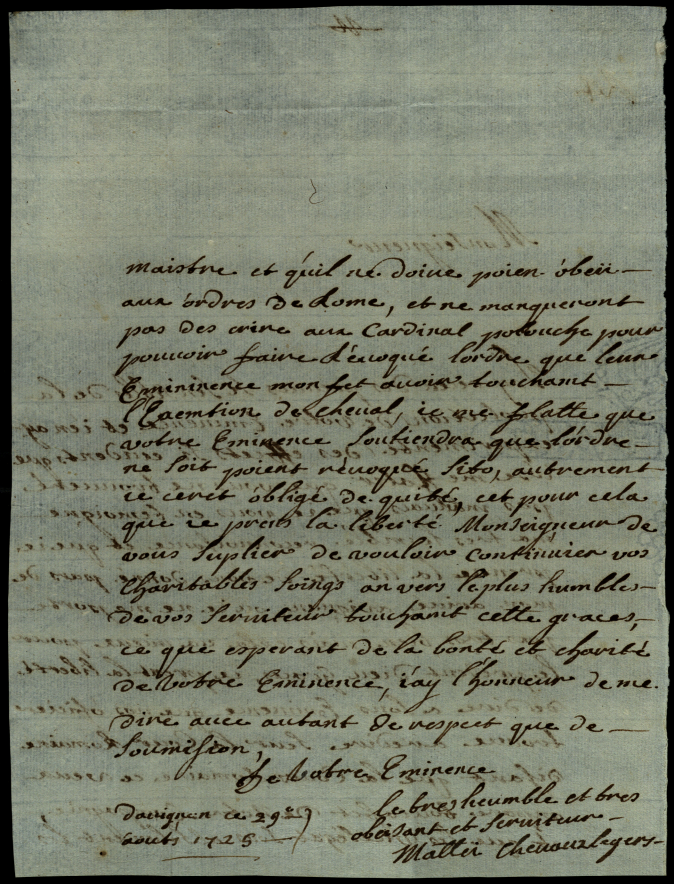 maistre et quil ne doiue poien óbeii
aux órdres de Rome, et ne manqueront
pas des crire aux Cardinal polouche pour
pouuoir fraire Réuoqué lordre que leur
Emininence mon fet auoir touchant
l'Exemtion de cheual, ie me flatte que
votre Eminence Soutiendra que lórdre
ne Soit poient réuoqué Sito, autrement
ie ceret obligé de quité, cet pour cela
que ie prens la liberté Monseigneur de
vous Suplier de vouloir continüier vos
Charitables Soings anvers le plus humbles
de vos Seruiteur touchant cette graces,
ce que esperant de la bonté et charité
de Votre Eminence, i'ay l'honneur de me
dire auec autant de respect que de
Soumission,
De Votre Eminence
Dauignon ce 29e
aouts 1725
le tres heumble et tres
obeisant et Seruiteur
Mattei Cheuauxlegers